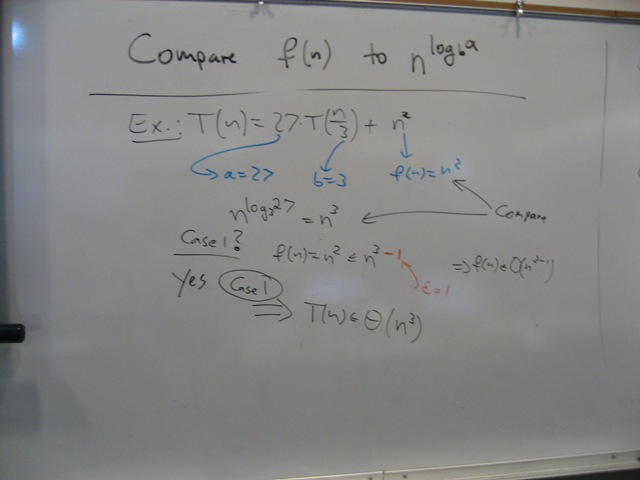 Compare f(n) to n^log_b a
Ex.: T(n) = 27·T(n/3) + n²
a=27 b=3 f(n)=n²
n^log₃27 = n³ Compare
Case 1?
f(n)=n² ≤ n³⁻¹ ⇒ f(n) ∈ O(n³⁻¹)
ε=1
Yes Case 1
⇒ T(n) ∈ Θ(n³)